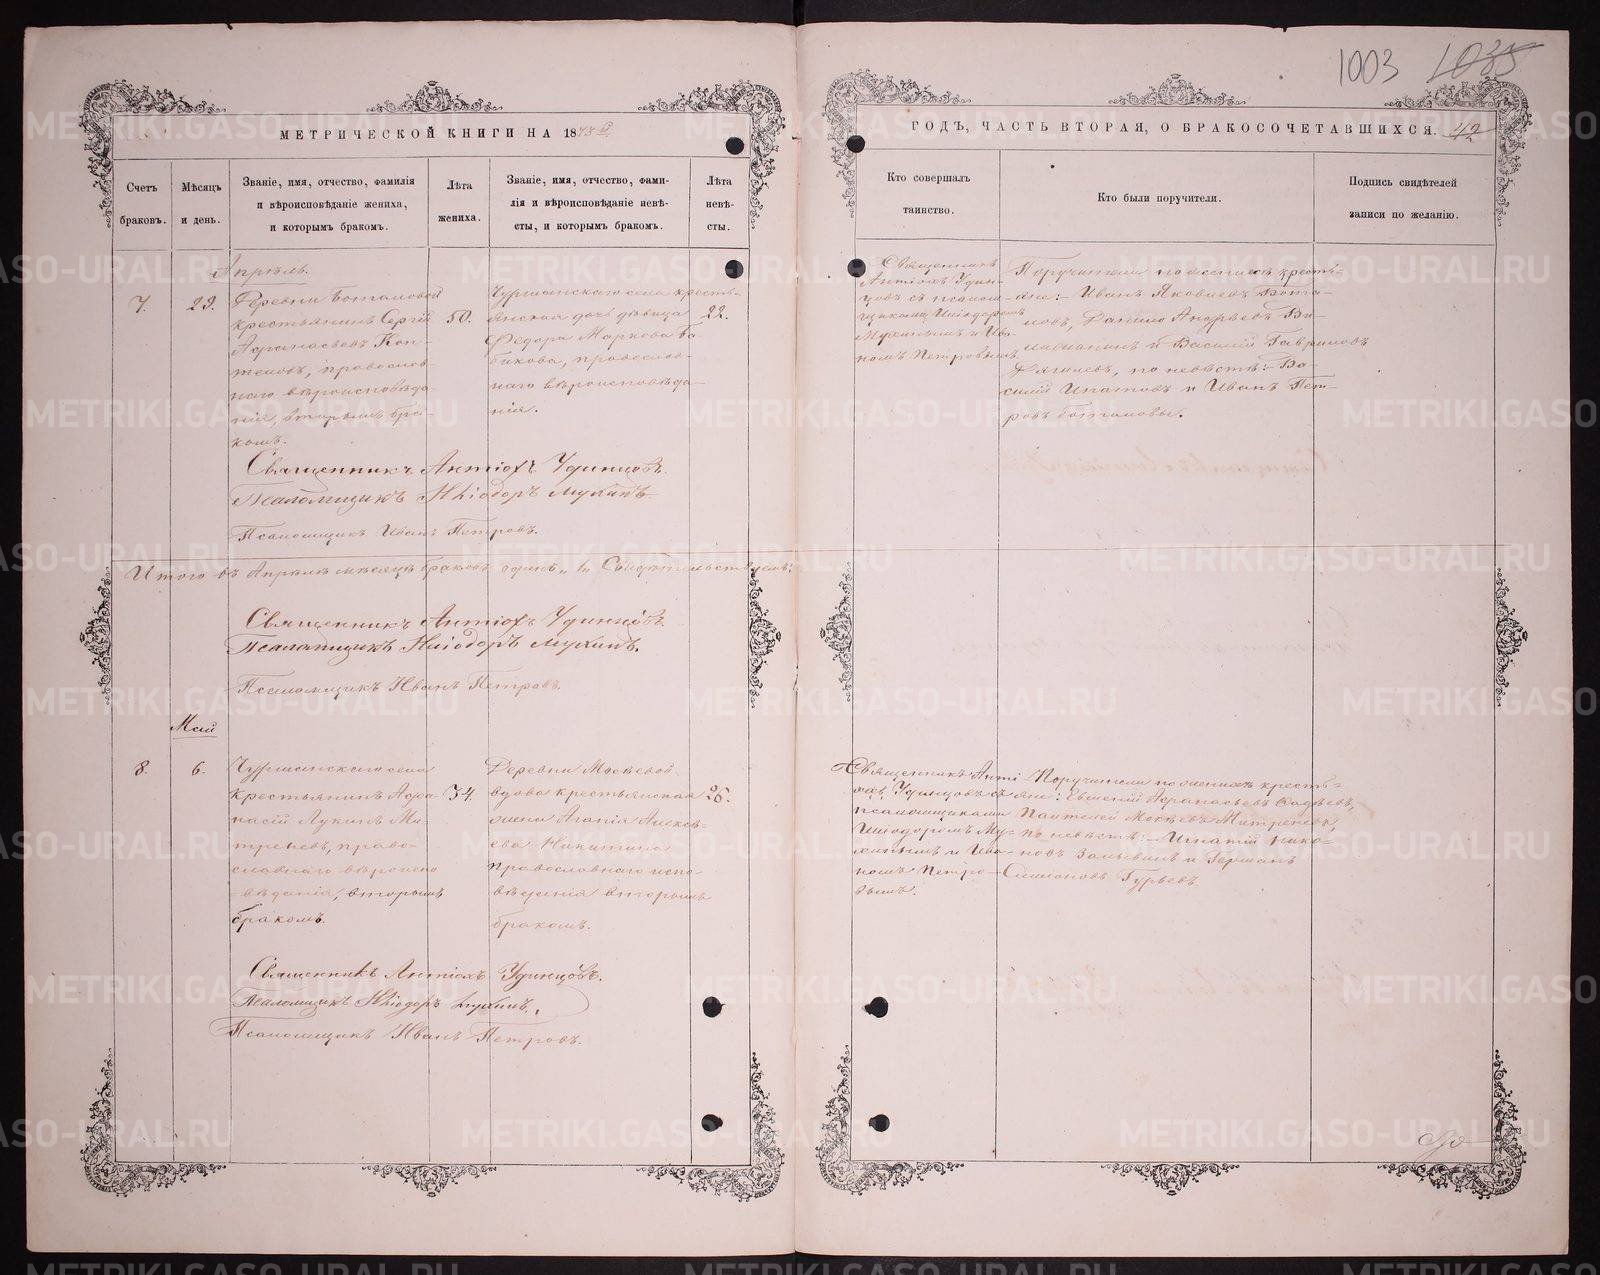 1003 1035
МЕТРИЧЕСКОЙ КНИГИ НА 1873 й
ГОДЪ, ЧАСТЬ ВТОРАЯ, О БРАКОСОЧЕТАВШИХСЯ. 42
Счетъ
браковъ.
Мѣсяцъ
и день.
Званіе, имя, отчество, фамилія
и вѣроисповѣданіе жениха,
и которымъ бракомъ.
Лѣта
жениха.
Званіе, имя, отчество, фами-
лія и вѣроисповѣданіе невѣ-
сты, и которымъ бракомъ.
Лѣта
невѣ-
сты.
Кто совершалъ
таинство.
Кто были поручители.
Подпись свидѣтелей
записи по желанію.
Апрѣль.
7.
29.
Деревни
крестьянинъ Сергій
Афанасьевъ
православ-
наго вѣроисповѣда-
нія, вторымъ бра-
комъ.
50.
села кресть-
янская дочь дѣвица
Ѳедора Маркова Ба-
бикова, православ-
наго вѣроисповѣда-
нія.
22.
Священникъ
Антіохъ Удин-
цовъ съ псалом-
щиками Иліодоромъ
Мухинымъ и Ива-
номъ Петровымъ
Поручители по женихѣ кресть-
яне: Иванъ Яковлевъ Бота-
ловъ, Данило Андреевъ
и Василій Гавриловъ
по невѣстѣ: Ва-
силій Ипатовъ и Иванъ Пет-
ровъ Боталовы.
Священникъ Антіохъ Удинцовъ.
Псаломщикъ Иліодоръ Мухинъ
Псаломщикъ Иванъ Петровъ.
Итого въ Апрѣлѣ мѣсяцѣ браковъ одинъ „1„ Свидѣтельствуемъ:
Священникъ Антіохъ Удинцовъ.
Псаломщикъ Иліодоръ Мухинъ.
Псаломщикъ Иванъ Петровъ.
Май
8.
6.
села
крестьянинъ Афа-
насій Лукинъ Ми-
треневъ, право-
славнаго вѣроиспо-
вѣданія, вторымъ
бракомъ.
34.
Деревни
вдова крестьянская
жена Агапія Алексѣ-
ева Никитина
православнаго испо-
вѣданія вторымъ
бракомъ.
25.
Священникъ Анті-
охъ Удинцовъ съ
псаломщиками
Иліодоромъ Му-
хинымъ и Ива-
номъ Петро-
вымъ.
Поручители по женихѣ кресть-
яне: Евмений Афанасьевъ
Пантелей Мокѣевъ Митреневъ,
по невѣстѣ: Игнатій Нико-
новъ и Германъ
Симоновъ Гурьевъ
Священникъ Антіохъ Удинцовъ.
Псаломщикъ Иліодоръ Мухинъ.
Псаломщикъ Иванъ Петровъ.
METRIKI.GASO-URAL.RU